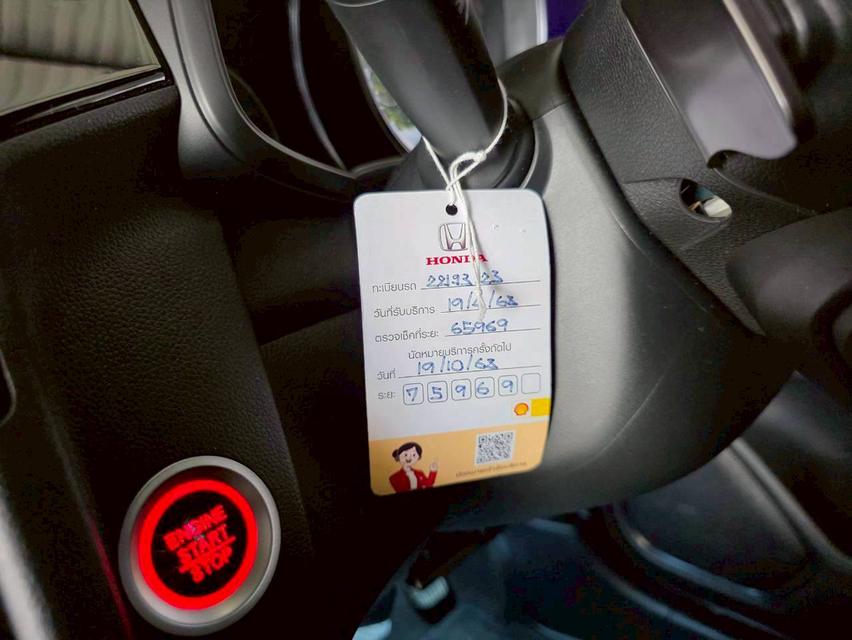 HONDA
ทะเบียนรถ
วันที่รับบริการ 19/4/63
ตรวจเช็คที่ระยะ: 65969
นัดหมายบริการครั้งถัดไป
วันที่ 19/10/63
ระยะ: 75969
ENGINE
START
STOP